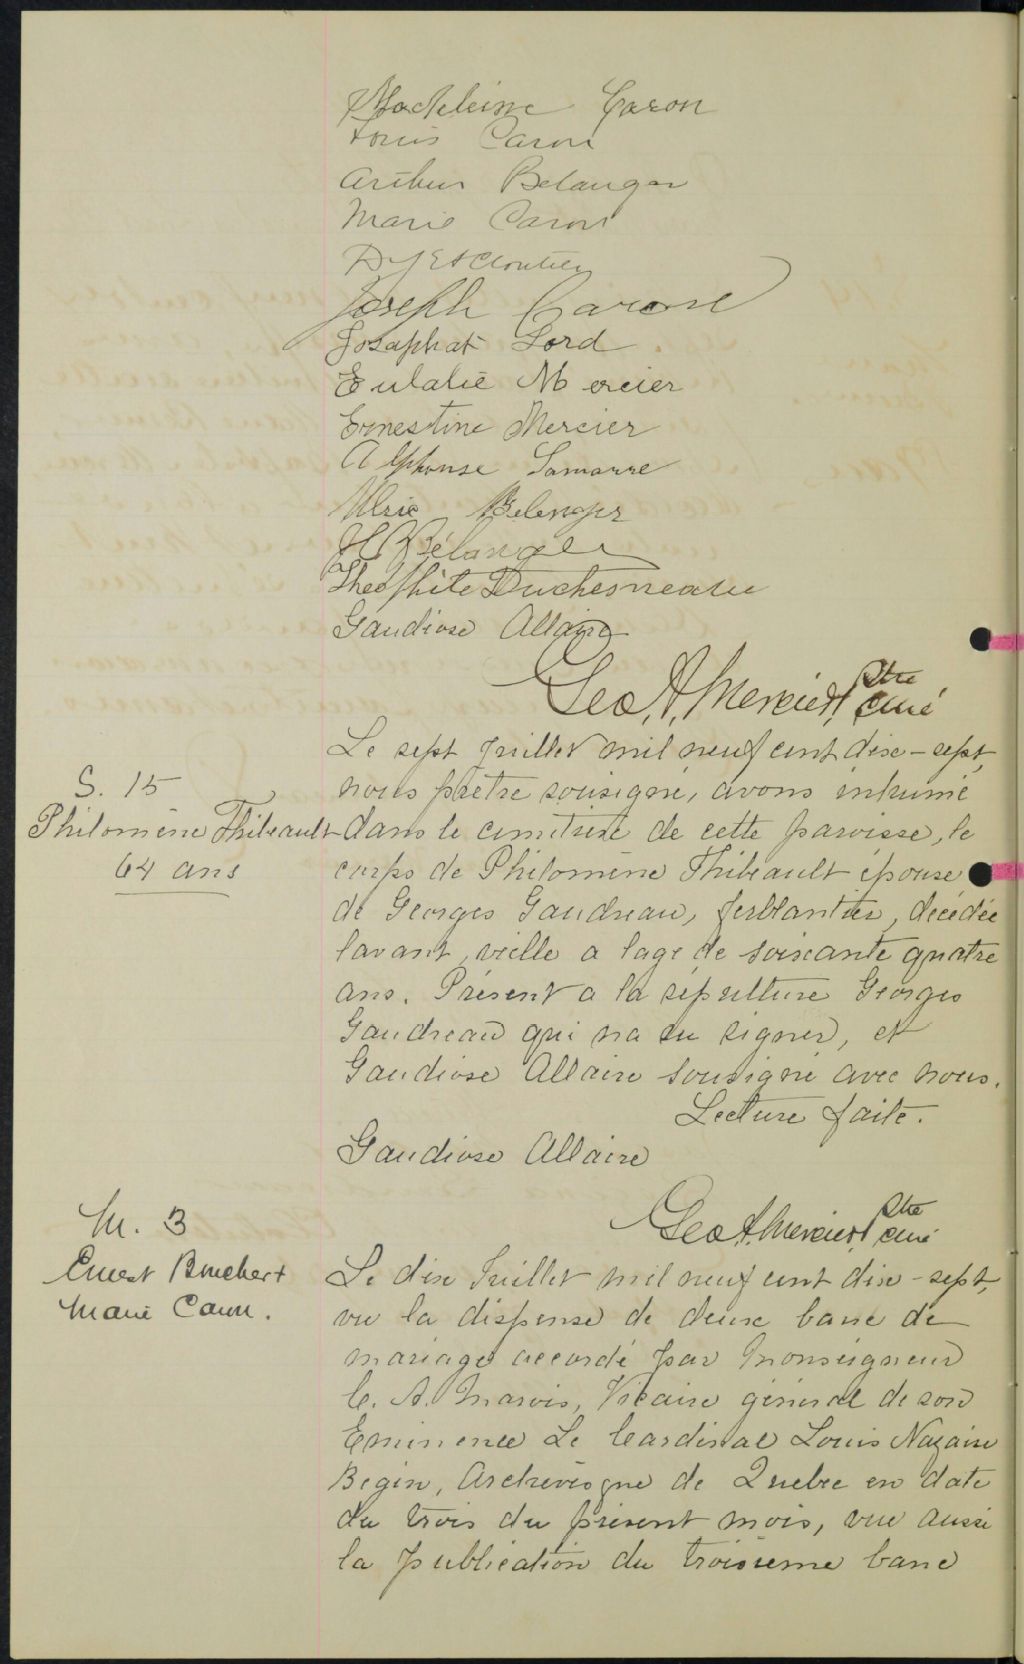 Madeleine Caron
Louis Caron
Arthur Belanger
Marie Caron
Cloutier
Joseph Caron
Josaphat Lord
Eulalie Mercier
Ernestine Mercier
Alphonse Lamarre
Ulric Belenger
Bélanger
Theophile Duchesneau
Gaudiose Allaire
Geo. A. Mercier, Ptre
curé
S. 15
Philomène Thibeault
64 ans
Le sept Juillet mil neuf cent dix-sept,
nous prêtre sousigné, avons inhumé
dans le cimetière de cette paroisse, le
corps de Philomène Thibeault épouse
de Georges Gaudreau, ferblantier, décédée
lavant, veille a lage de soixante quatre
ans. Présent a la sépulture Georges
Gaudreau qui na su signer, et
Gaudiose Allaire sousigné avec nous.
Lecture faite.
Gaudiose Allaire
Geo A. Mercier, Ptre
curé
M. 3
Ernest Bouchert
Marie Caron.
Le dix Juillet mil neuf cent dix-sept,
vu la dispense de deux banc de
mariage accordé par Monseigneur
C. A. Marois, Vicaire général de son
Eminence Le Cardinal Louis Nazaire
Begin, Archevêque de Quebec en date
du trois du présent mois, vue aussi
la publication du troisième banc